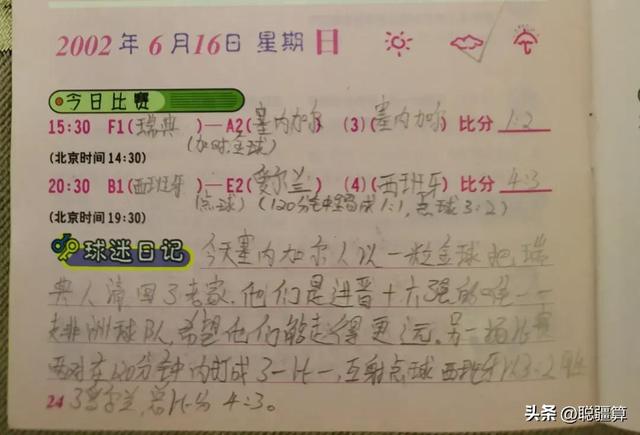 2002 年 6 月 16 日 星期 日
今日比赛
15:30 F1(瑞典 )—A2(塞内加尔) (3)(塞内加尔) 比分 1:2
(加时金球)
(北京时间14:30)
20:30 B1(西班牙 )—E2(爱尔兰 ) (4)(西班牙) 比分 4:3
(点球) (120分钟中踢成1:1, 点球3:2)
(北京时间19:30)
球迷日记 今天塞内加尔人以一粒金球把瑞
典人清回了老家. 他们是进晋十六强的唯一一
支非洲球队, 希望他们能走得更远. 另一场比赛
两对在120分钟内打成了一比一, 互射点球西班牙以3:2
了爱尔兰, 总比分 4:3。
24
头条 @聪疆算